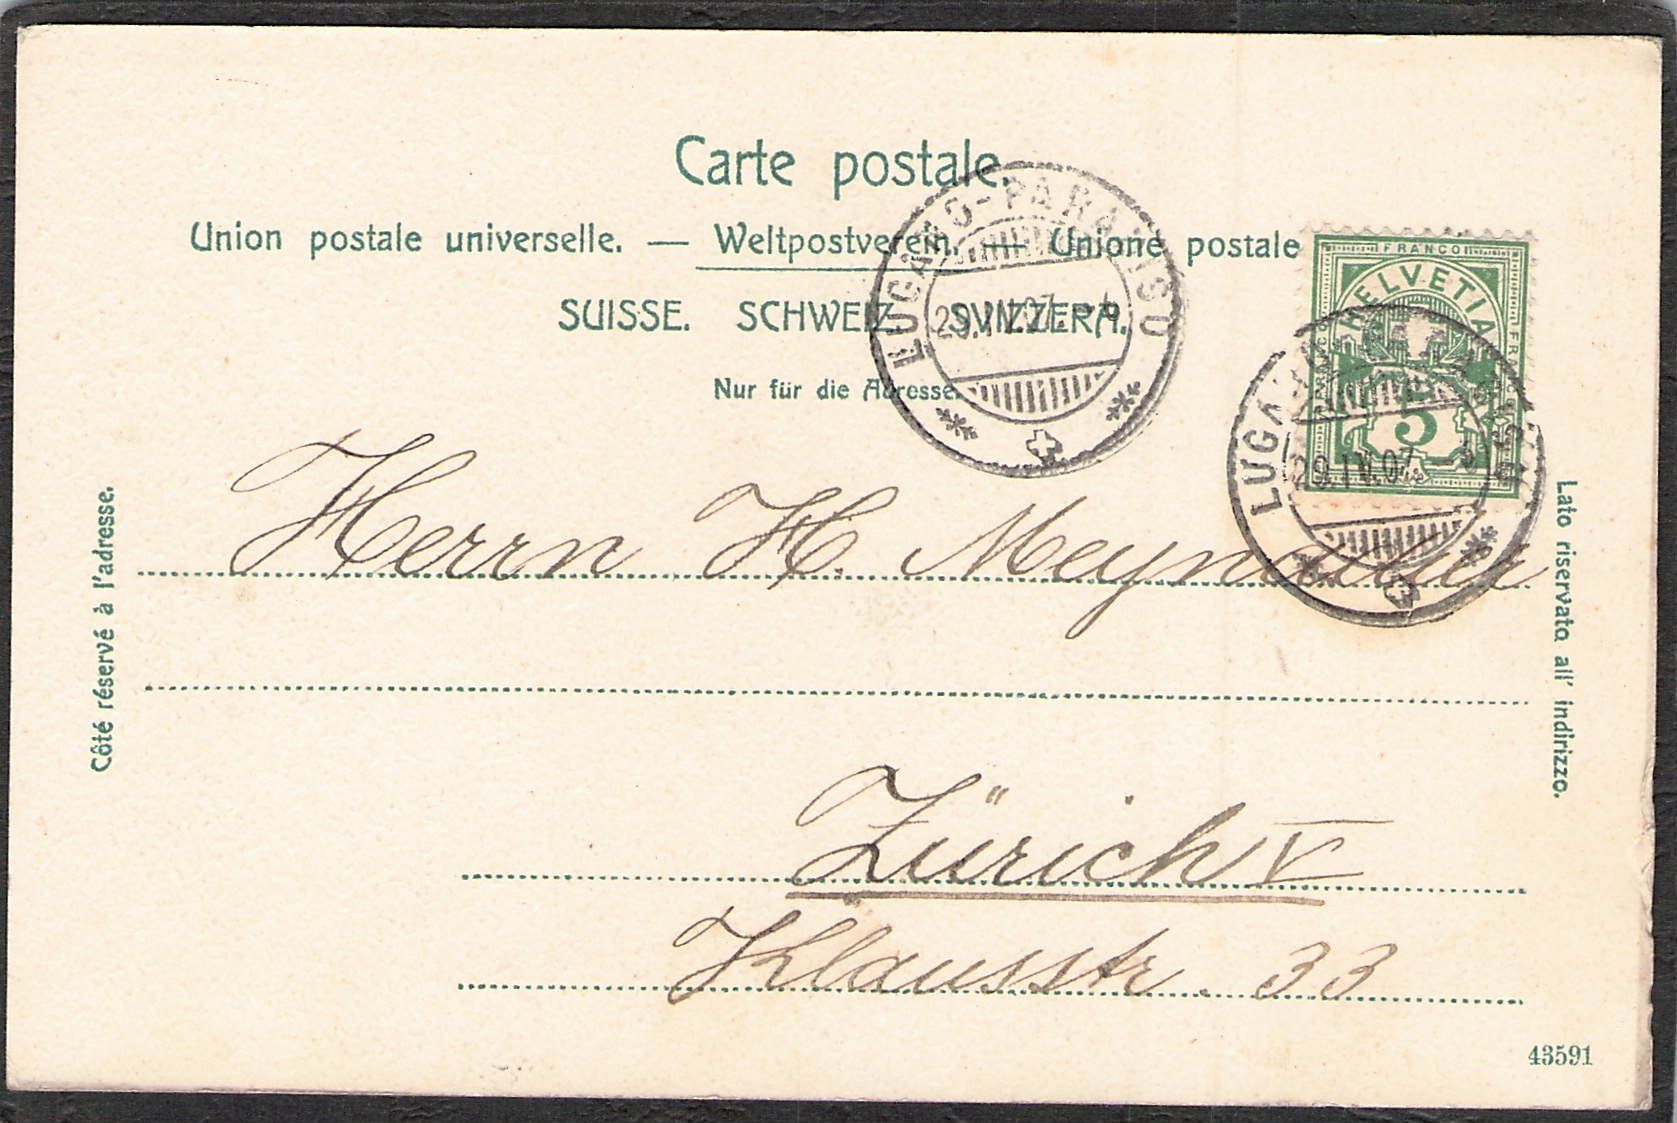 Carte postale.
Union postale universelle. — Weltpostverein. — Unione postale
SUISSE. SCHWEIZ. SVIZZERA.
Nur für die Adresse.
LUGANO-PARADISO
29.IV.07.
FRANCO
HELVETIA
5
LUGANO-PARADISO
29.IV.07.
Herrn H.
Zürich V
Klausstr. 33
Côté réservé à l'adresse.
Lato riservato all' indirizzo.
43591